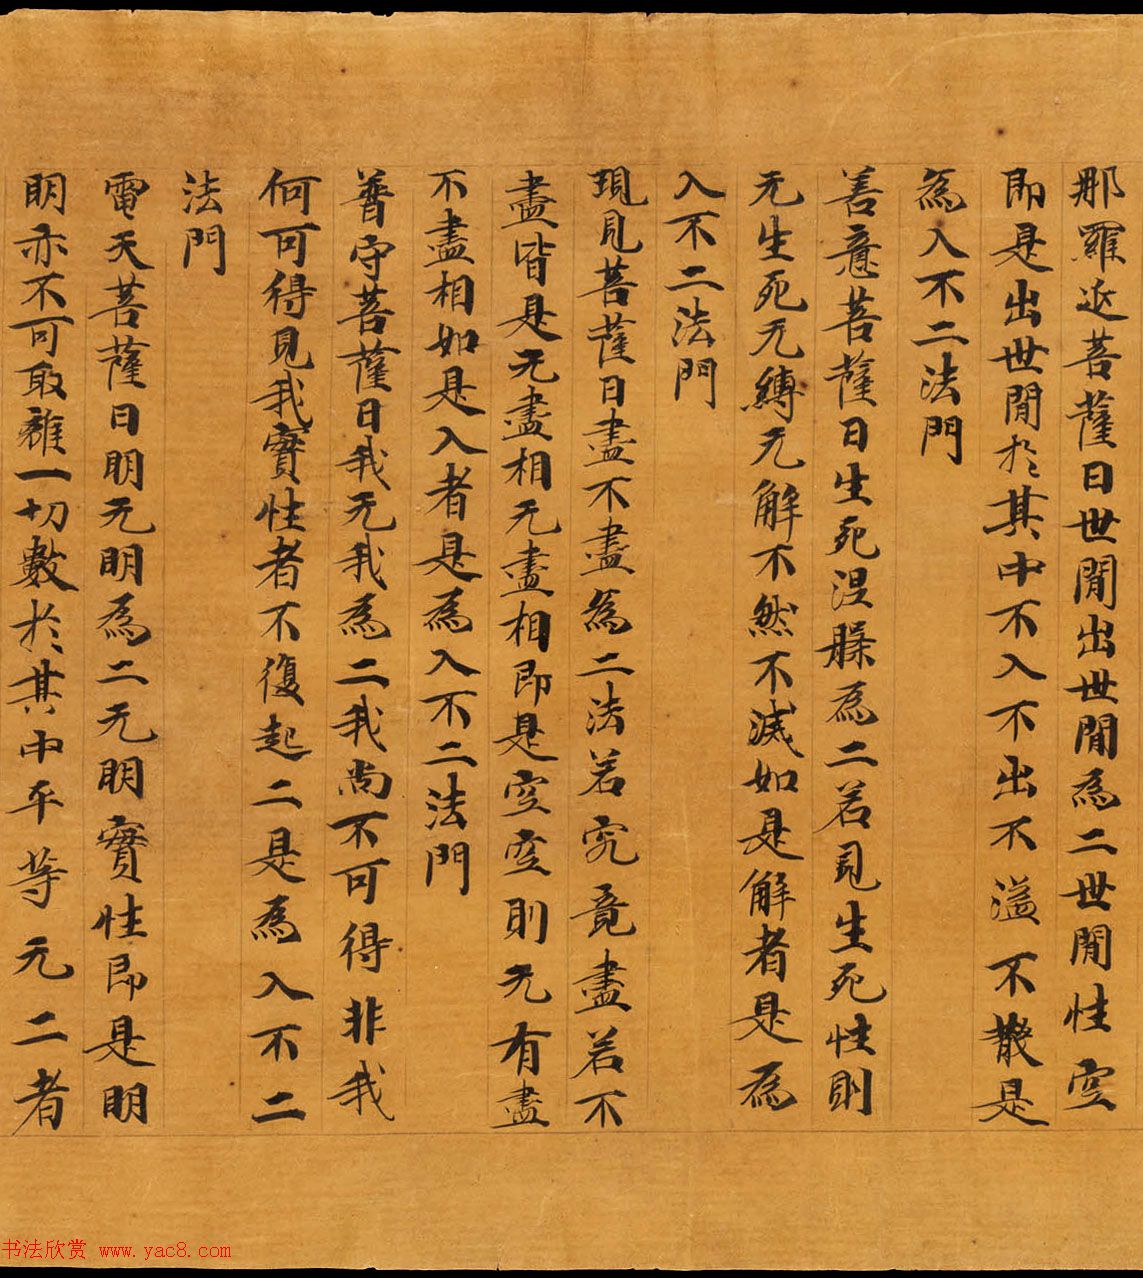 那羅延菩薩曰世間出世間為二世間性空
即是出世間於其中不入不出不溢不散是
為入不二法門
善意菩薩曰生死涅槃為二若見生死性則
无生死无縛无解不然不滅如是解者是為
入不二法門
現見菩薩曰盡不盡為二法若究竟盡若不
盡皆是无盡相无盡相即是空空則无有盡
不盡相如是入者是為入不二法門
普守菩薩曰我无我為二我尚不可得非我
何可得見我實性者不復起二是為入不二
法門
電天菩薩曰明无明為二无明實性即是明
明亦不可取離一切數於其中平等无二者
书法欣赏 www.yac8.com